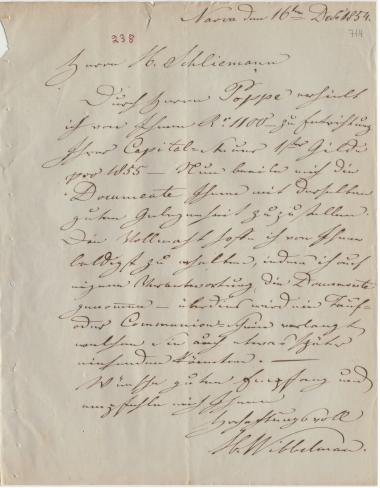 Narva den 16ten Decbr 1854.
238
714
Herrn H. Schliemann
Durch Herrn Poppe erhielt
ich von Ihnen Ro 1100 – zu Entrichtung
Ihrer Capital-steuer 1ster Gilde
pro 1855 – Nun beeile mich die
Documente Ihnen mit derselben
guten Gelegenheit zuzustellen.
Die Vollmacht hoffe ich von Ihnen
baldigst zu erhalten, indem ich auf
eigene Verantwortung die Documente
genommen – überdem wird ein Tauf-
oder Communion-schein verlangt
welchen Sie auch etwas später
einsenden könnten. —
Wünsche guten Empfang und
empfehle mich Ihnen
hochachtungsvoll
H. Wibbelman.